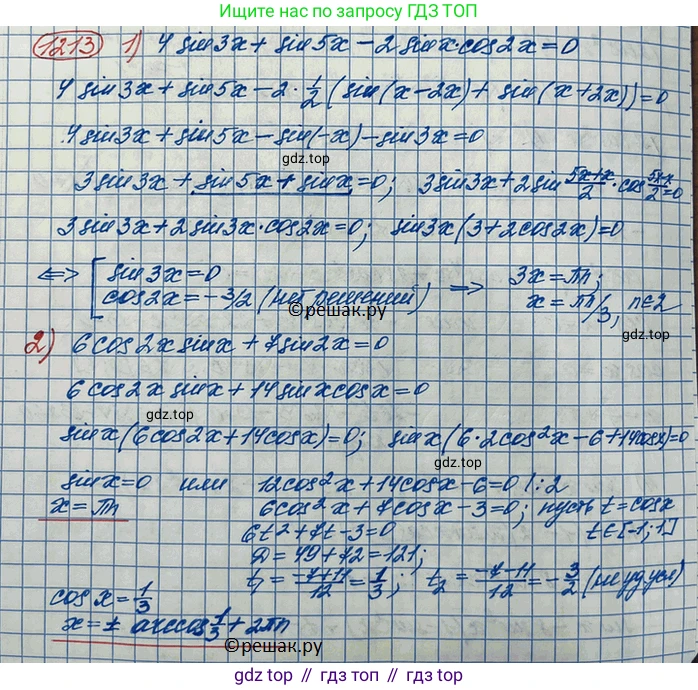 подпишись на прекрасное а потом
гдз по запросу ГДЗ ТОП
1213 1) 4 sin3x + sin5x - 2 sinx·cos2x = 0
4 sin3x + sin5x - 2·1/2 (sin(x-2x) + sin(x+2x)) = 0
4 sin3x + sin5x - sin(-x) - sin3x = 0
gdz.top
3 sin3x + sin5x + sinx = 0; 3 sin3x + 2 sin (5x+x)/2 · cos (5x-x)/2 = 0
3 sin3x + 2 sin3x·cos2x = 0; sin3x(3 + 2cos2x) = 0
⟺ [ sin3x = 0 ⟹ 3x = πn;
cos2x = -3/2 (нет решений) x = πn/3, n∈Z
©решак.ру
2) 6cos2x sinx + 7sin2x = 0
6cos2x sinx + 14 sinx cosx = 0
gdz.top
sinx(6cos2x + 14cosx) = 0; sinx(6·2cos²x - 6 + 14cosx) = 0
gdz.top
sinx = 0 или 12cos²x + 14cosx - 6 = 0 /:2
x = πn 6cos²x + 7cosx - 3 = 0; пусть t = cosx
6t² + 7t - 3 = 0 t∈[-1;1]
D = 49 + 72 = 121;
t₁ = (-7+11)/12 = 1/3; t₂ = (-7-11)/12 = -3/2 (не уд усл)
cosx = 1/3
x = ± arccos 1/3 + 2πn
©решак.ру
gdz.top // гдз.топ // гдз.top